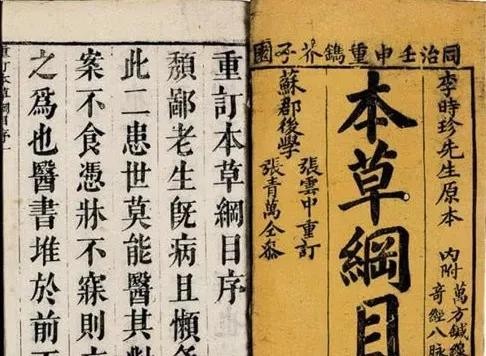 同治壬申重鐫芥子園
李時珍先生原本
內附
萬方鍼線
奇經八脉
本草綱目
蘇郡後學
張雲中重訂
張青萬仝參
重訂本草綱目序
頹鄙老生旣病且懶
此二患世莫能醫其對
案不食憑牀不寐則
之爲也醫書堆於前
重訂本草綱目序